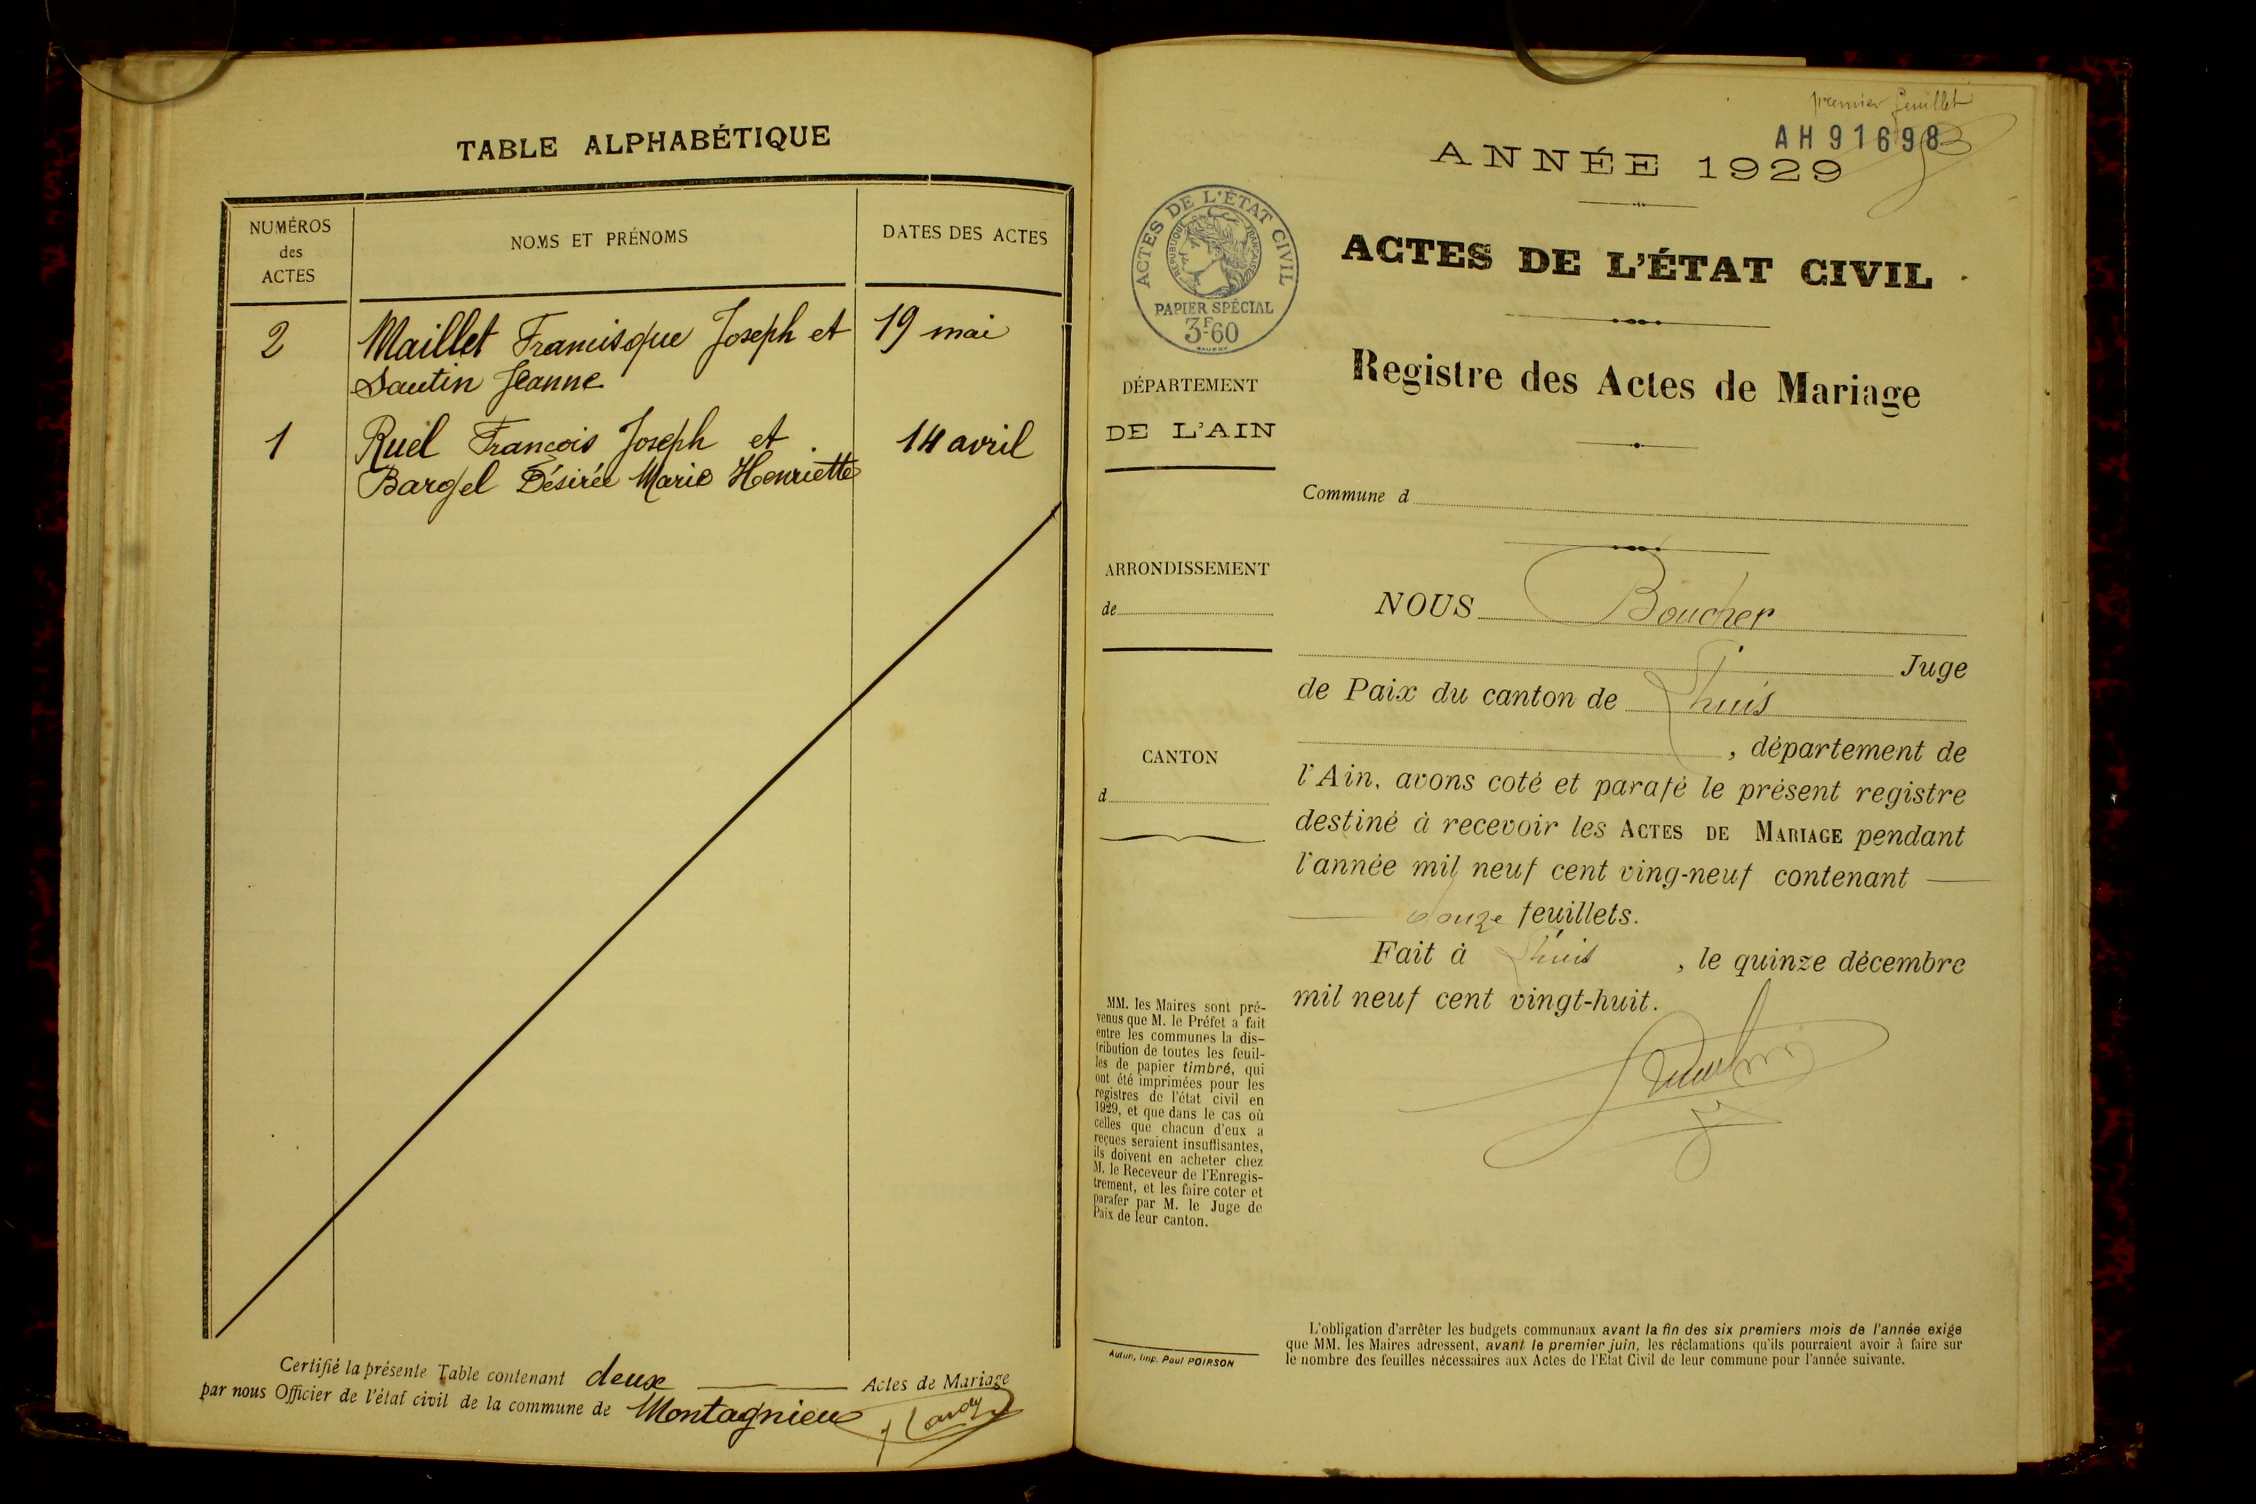 TABLE ALPHABÉTIQUE
NUMÉROS
des
ACTES
NOMS ET PRÉNOMS
DATES DES ACTES
2
Maillet Francisque Joseph et
19 mai
Sautin Jeanne
1
Ruel François Joseph et
14 avril
Bargel Désirée Marie Henriette
Certifié la présente Table contenant deux Actes de Mariage
par nous Officier de l'état civil de la commune de Montagnieu
premier feuillet
AH91698
ANNÉE 1929
ACTES DE L'ÉTAT CIVIL
RÉPUBLIQUE FRANÇAISE
PAPIER SPÉCIAL
3F60
ACTES DE L'ÉTAT CIVIL
Registre des Actes de Mariage
DÉPARTEMENT
DE L'AIN
Commune d
ARRONDISSEMENT
de
CANTON
d
NOUS Boucher
Juge
de Paix du canton de Lhuis
, département de
l'Ain, avons coté et parafé le présent registre
destiné à recevoir les ACTES DE MARIAGE pendant
l'année mil neuf cent ving-neuf contenant —
— douze feuillets.
Fait à Lhuis , le quinze décembre
mil neuf cent vingt-huit.
MM. les Maires sont pré-
venus que M. le Préfet a fait
entre les communes la dis-
tribution de toutes les feuil-
les de papier timbré, qui
ont été imprimées pour les
registres de l'état civil en
1929, et que dans le cas où
celles que chacun d'eux a
reçues seraient insuffisantes,
ils doivent en acheter chez
M. le Receveur de l'Enregis-
trement, et les faire coter et
parafer par M. le Juge de
Paix de leur canton.
Autun, Imp. Paul POIRSON
L'obligation d'arrêter les budgets communaux avant la fin des six premiers mois de l'année exige
que MM. les Maires adressent, avant le premier juin, les réclamations qu'ils pourraient avoir à faire sur
le nombre des feuilles nécessaires aux Actes de l'Etat Civil de leur commune pour l'année suivante.